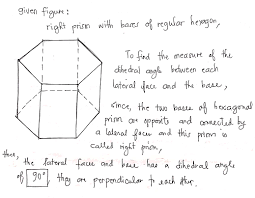 given figure:
right prism with bases of regular hexagon,
To find the measure of the
dihedral angle between each
lateral face and the base,
since, the two bases of hexagonal
prism are opposite and connected by
a lateral faces and this prism is
called right prism,
then, the lateral face and base has a dihedral angle
of 90°, they are perpendicular to each other.